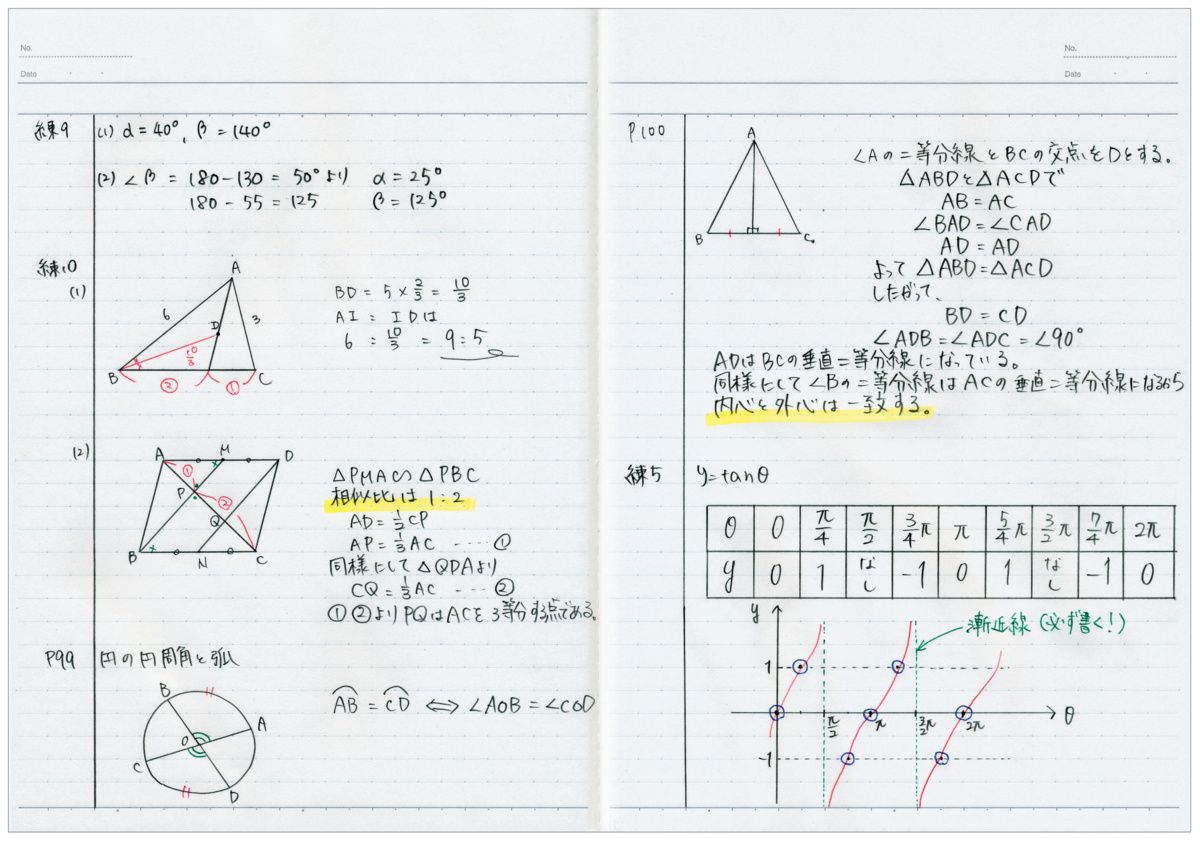 No.
Date
練9 (1) α = 40°, β = 140°
(2) ∠β = 180-130 = 50°より α = 25°
180 - 55 = 125 β = 125°
練10
(1)
A
6
3
D
10/3
B
②
①
C
BD = 5 × 2/3 = 10/3
AI : IDは
6 : 10/3 = 9:5
(2)
A M D
①
P
②
Q
B N C
△PMA∽△PBC
相似比は 1:2
AD = 1/2 CP
AP = 1/3 AC ---- ①
同様にして △QDAより
CQ = 1/3 AC --- ②
①②より PQはACを3等分する点である。
P99 円の円周角と弧
B
A
O
C
D
AB = CD ⇔ ∠AOB = ∠COD
No.
Date
P100
A
B
C
∠Aの二等分線とBCの交点をDとする。
△ABDと△ACDで
AB = AC
∠BAD = ∠CAD
AD = AD
よって △ABD = △ACD
したがって、
BD = CD
∠ADB = ∠ADC = ∠90°
ADはBCの垂直二等分線になっている。
同様にして∠Bの二等分線はACの垂直二等分線になるから
内心と外心は一致する。
練5 y = tanθ
θ 0 π/4 π/2 3/4π π 5/4π 3/2π 7/4π 2π
y 0 1 なし -1 0 1 なし -1 0
y
漸近線(必ず書く!)
1
π/2 π 3/2π 2π θ
-1